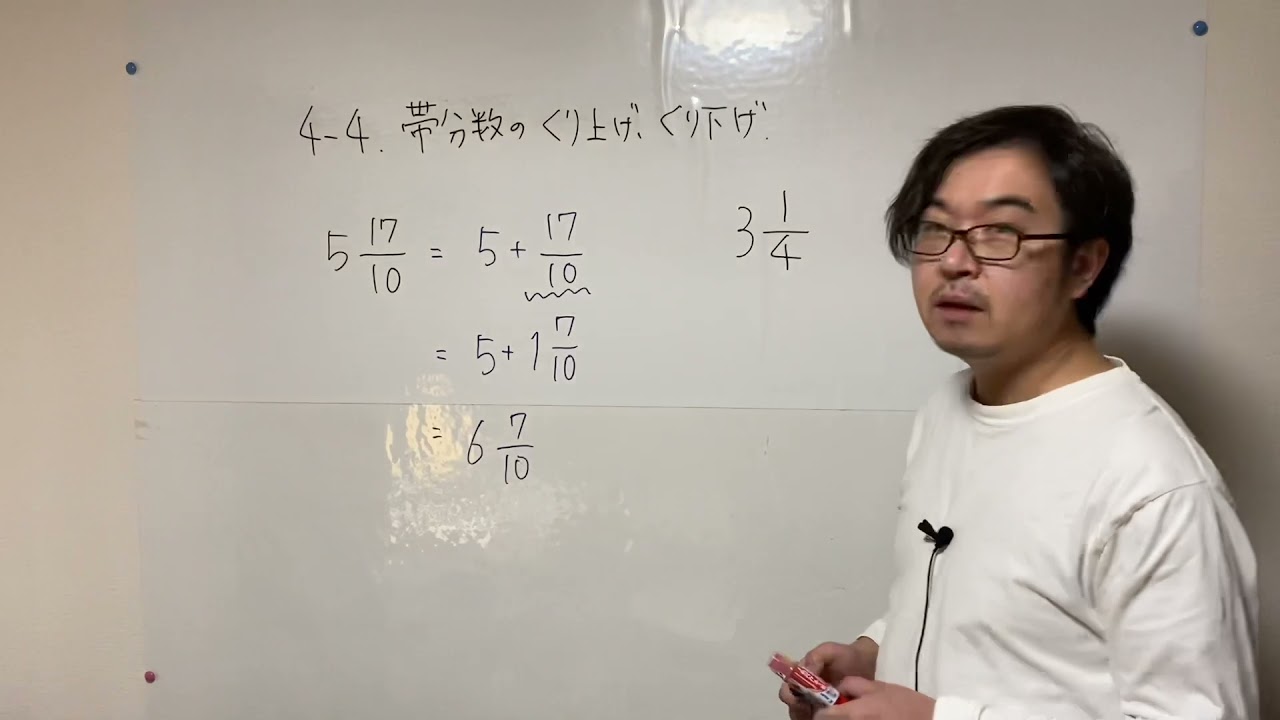 4-4. 帯分数のくり上げ、くり下げ.
5 17/10 = 5 + 17/10
= 5 + 1 7/10
= 6 7/10
3 1/4